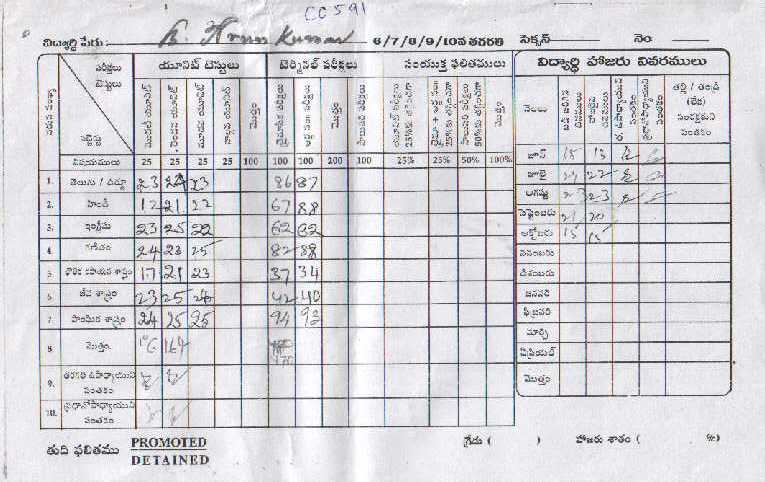 CC591
విద్యార్థి పేరు K. Arun Kumar 6/7/8/9/10వ తరగతి సెక్షన్ నెం
వరుస సంఖ్య పరీక్షలు టెస్టులు సబ్జెక్టు యూనిట్ టెస్టులు టెర్మినల్ పరీక్షలు సంయుక్త ఫలితములు
మొదటి యూనిట్ రెండవ యూనిట్ మూడవ యూనిట్ నాల్గవ యూనిట్ మొత్తం మొత్తం మొత్తం
విషయములు 25 25 25 25 100 100 100 200 100 25% 25% 50% 100%
1. తెలుగు / ఉర్దూ 23 24 23 86 87
2. హిందీ 12 21 22 67 88
3. ఇంగ్లీషు 23 25 22 62 62
4. గణితం 24 23 25 82 88
5. భౌతిక రసాయన శాస్త్రం 17 21 23 37 34
6. జీవ శాస్త్రం 23 25 42 40
7. సాంఘిక శాస్త్రం 24 25 25 94 92
8. మొత్తం 164
9. తరగతి ఉపాధ్యాయుని సంతకం
10. ప్రధానోపాధ్యాయుని సంతకం
విద్యార్థి హాజరు వివరములు
నెలలు తల్లి / తండ్రి (లేక) సంరక్షకుని సంతకం
జూన్ 15 13
జూలై 22
ఆగష్టు 23 23
సెప్టెంబరు 21 20
అక్టోబరు 15 15
నవంబరు
డిసెంబరు
జనవరి
ఫిబ్రవరి
మార్చి
ఏప్రియల్
మొత్తం
తుది ఫలితము PROMOTED
DETAINED
గ్రేడు ( ) హాజరు శాతం ( %)